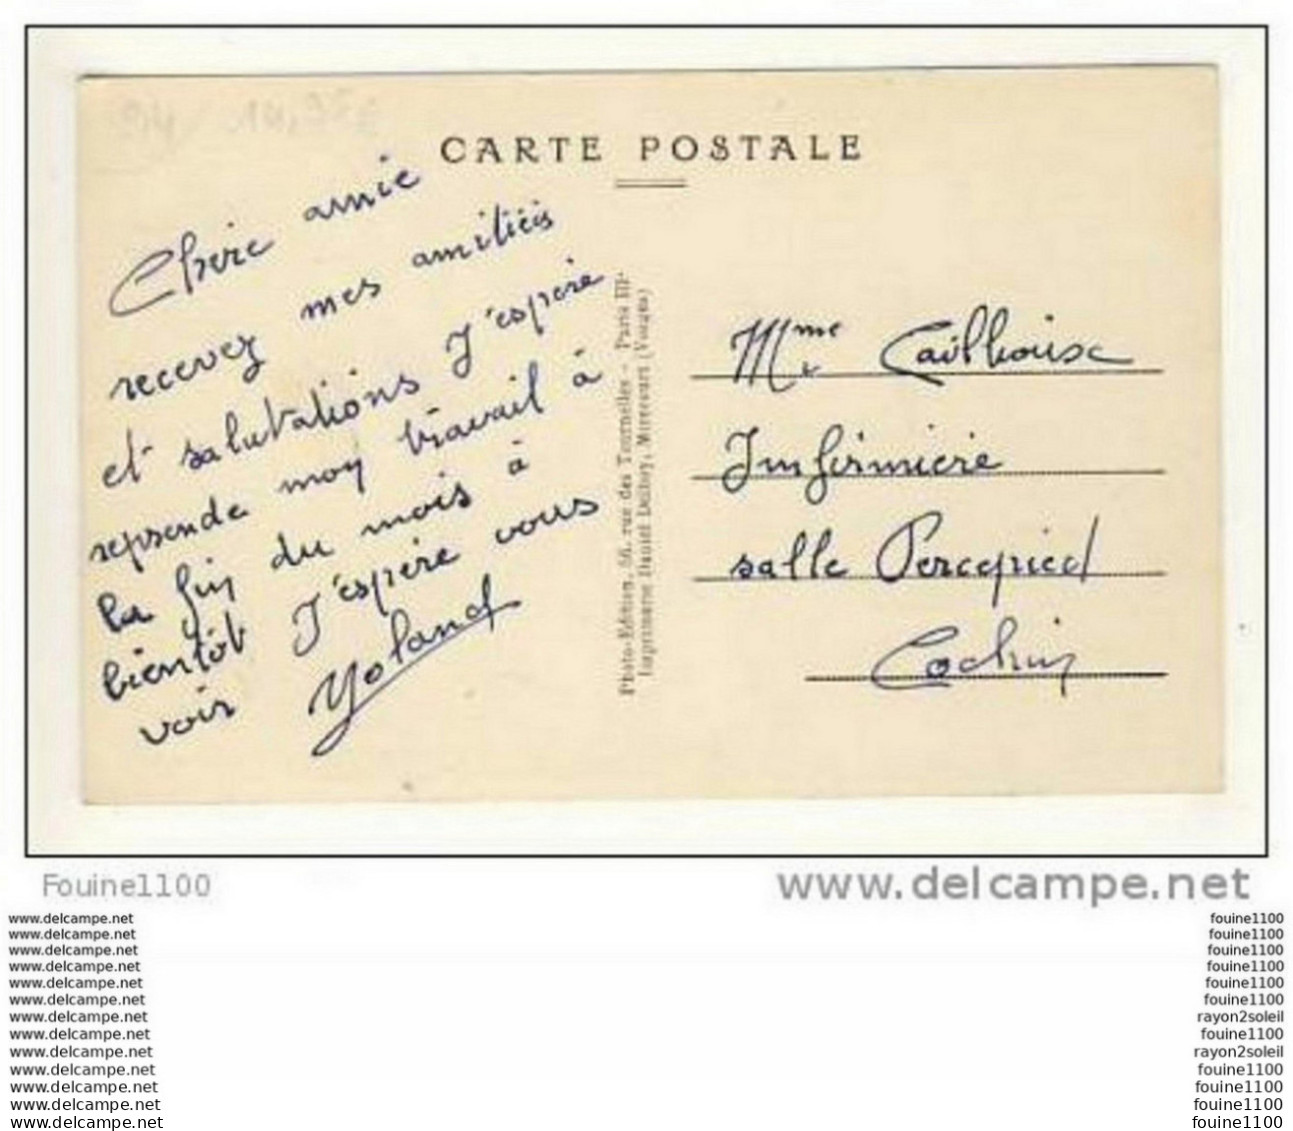 CARTE POSTALE
Chère amie
recevez mes amitiés
et salutations J'espère
reprende moy travail à
la fin du mois à
bientôt J'espère vous
voir Yoland
Photo-Edition, 56, rue des Tournelles - Paris III.
Imprimerie Daniel Delboy, Mirecourt (Vosges)
Mme
Infirmière
salle Percepied
Cochin
Fouine1100
www.delcampe.net
www.delcampe.net fouine1100
www.delcampe.net fouine1100
www.delcampe.net fouine1100
www.delcampe.net fouine1100
www.delcampe.net fouine1100
www.delcampe.net fouine1100
www.delcampe.net rayon2soleil
www.delcampe.net fouine1100
www.delcampe.net rayon2soleil
www.delcampe.net fouine1100
www.delcampe.net fouine1100
www.delcampe.net fouine1100
www.delcampe.net fouine1100